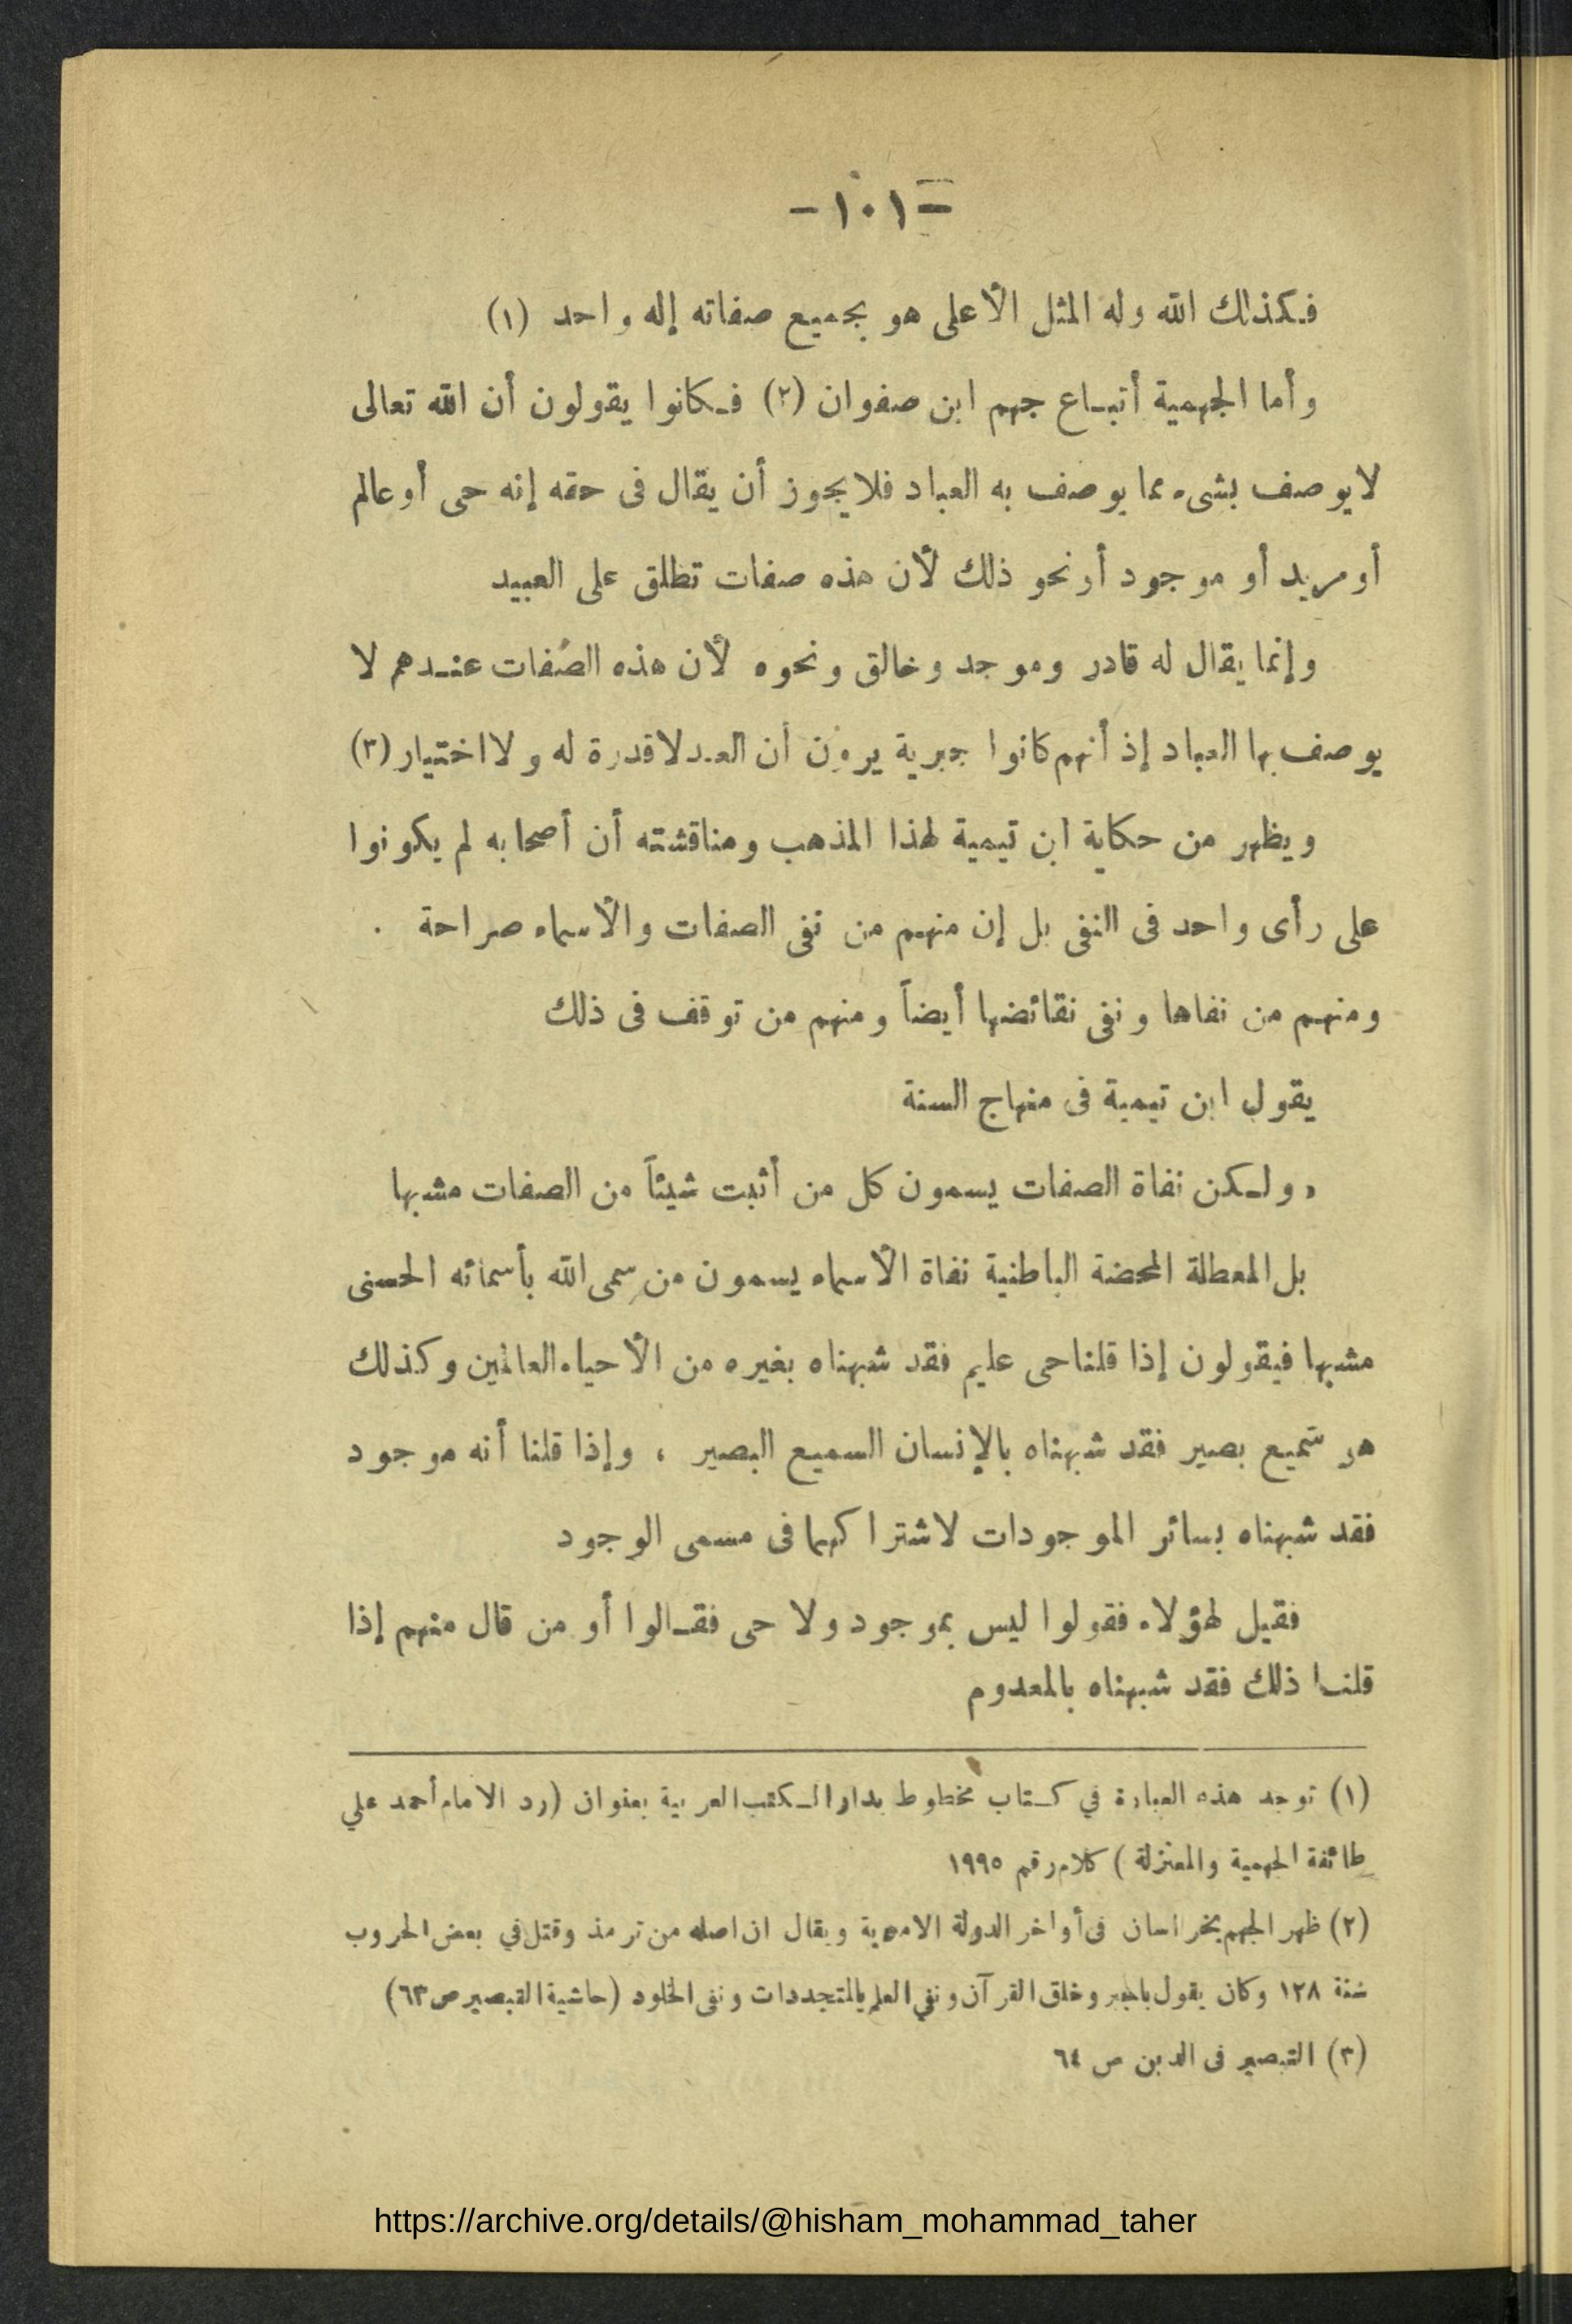 - ١٠١ -
فكذلك الله وله المثل الأعلى هو بجميع صفاته إله واحد (١)
وأما الجهمية أتباع جهم ابن صفوان (٢) فكانوا يقولون أن الله تعالى
لايوصف بشىء مما يوصف به العباد فلا يجوز أن يقال فى حقه إنه حى أو عالم
أو مريد أو موجود أو نحو ذلك لأن هذه صفات تطلق على العبيد
وإنما يقال له قادر وموجد وخالق ونحوه لأن هذه الصفات عندهم لا
يوصف بها العباد إذ أنهم كانوا جبرية يرون أن العبد لا قدرة له ولا اختيار (٣)
ويظهر من حكاية ابن تيمية لهذا المذهب ومناقشته أن أصحابه لم يكونوا
على رأى واحد فى النفى بل إن منهم من نفى الصفات والأسماء صراحة .
ومنهم من نفاها ونفى نقائضها أيضاً ومنهم من توقف فى ذلك
يقول ابن تيمية فى منهاج السنة
« ولكن نفاة الصفات يسمون كل من أثبت شيئاً من الصفات مشبها
بل المعطلة المحضة الباطنية نفاة الأسماء يسمون من سمى الله بأسمائه الحسنى
مشبها فيقولون إذا قلنا حى عليم فقد شبهناه بغيره من الأحياء العالمين وكذلك
هو سميع بصير فقد شبهناه بالإنسان السميع البصير ، وإذا قلنا أنه موجود
فقد شبهناه بسائر الموجودات لاشتراكهما فى مسمى الوجود
فقيل لهؤلاء فقولوا ليس بموجود ولا حى فقالوا أو من قال منهم إذا
قلنا ذلك فقد شبهناه بالمعدوم
(١) توجد هذه العبارة في كتاب مخطوط بدار الكتب العربية بعنوان (رد الامام أحمد علي
طائفة الجهمية والمعتزلة ) كلام رقم ١٩٩٥
(٢) ظهر الجهم بخراسان فى أواخر الدولة الاموية ويقال ان اصله من ترمذ وقتل في بعض الحروب
سنة ١٢٨ وكان يقول بالجبر وخلق القرآن ونفي العلم بالمتجددات ونفى الخلود (حاشية التبصير ص ٦٣)
(٣) التبصير فى الدين ص ٦٤
https://archive.org/details/@hisham_mohammad_taher